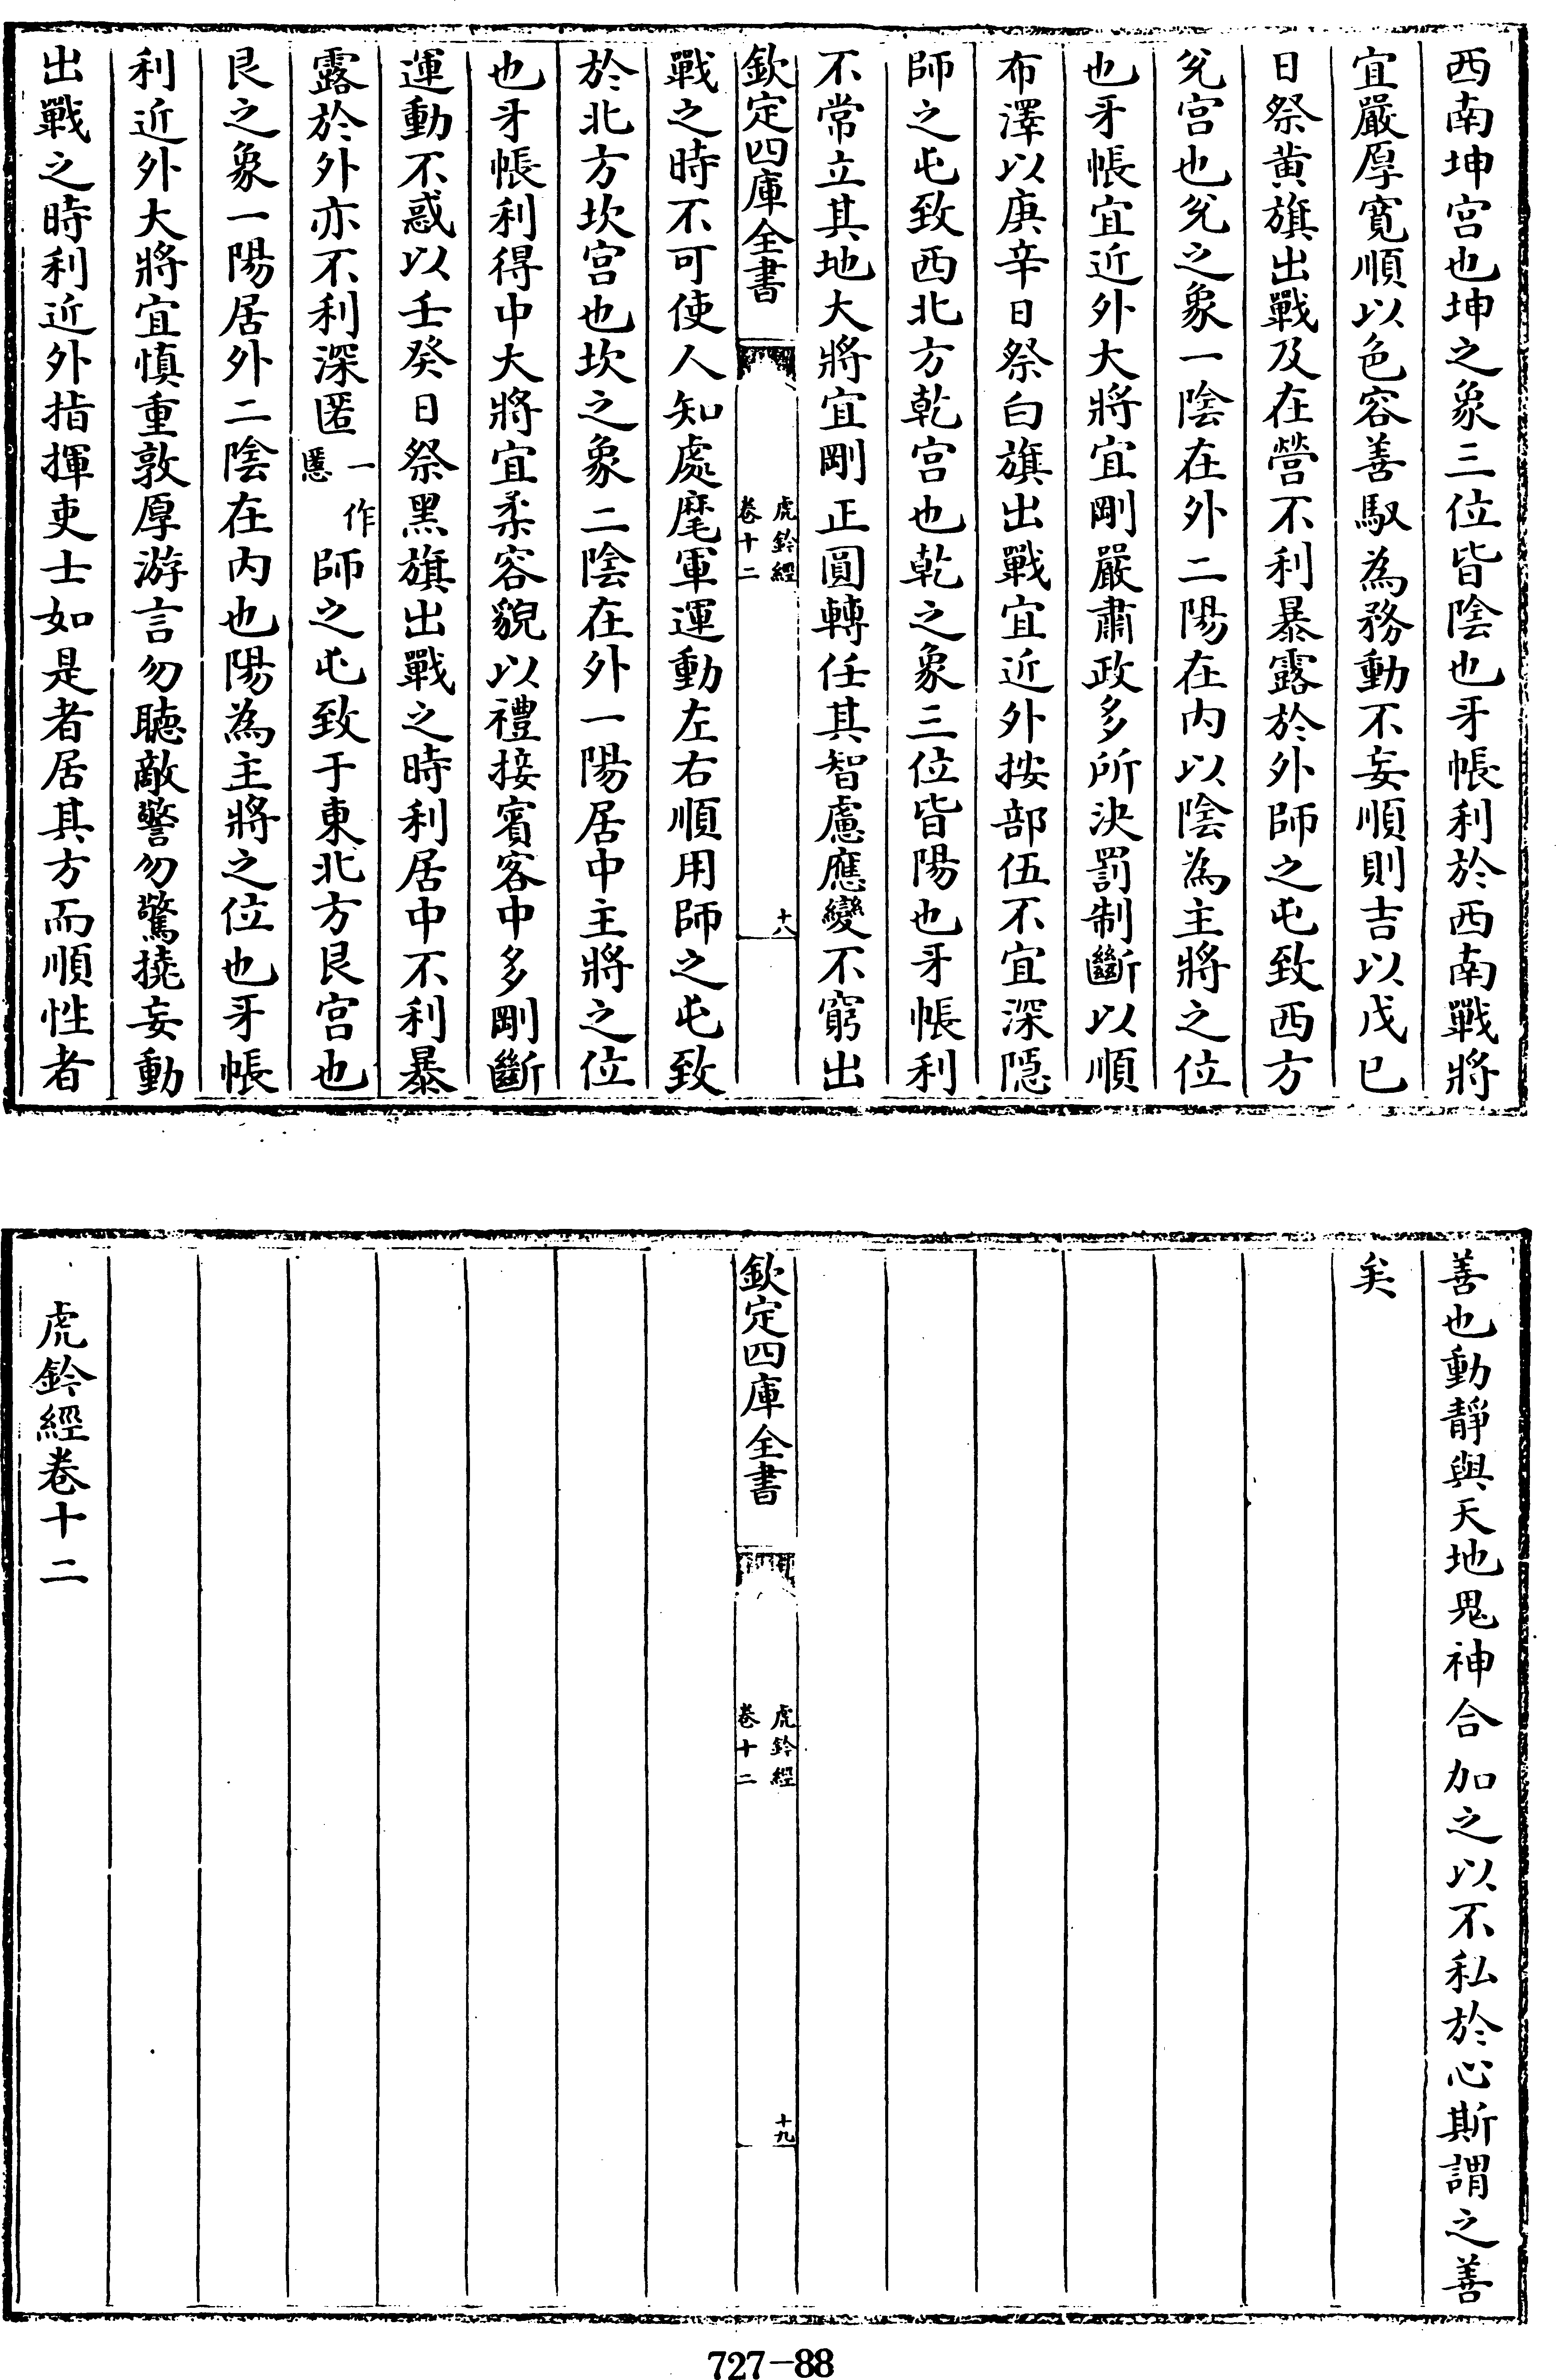 西南坤宫也坤之象三位皆陰也牙帳利於西南戰將
宜嚴厚寛順以色容善馭為務動不妄順則吉以戊巳
日祭黄旗出戰及在營不利暴露於外師之屯致西方
兊宫也兊之象一陰在外二陽在内以陰為主將之位
也牙帳宜近外大將宜剛嚴肅政多所決罰制斷以順
布澤以庚辛日祭白旗出戰宜近外按部伍不宜深隱
師之屯致西北方乾宫也乾之象三位皆陽也牙帳利
不常立其地大將宜剛正圓轉任其智慮應變不窮出
欽定四庫全書
虎鈐經
卷十二
十八
戰之時不可使人知處麾軍運動左右順用師之屯致
於北方坎宫也坎之象二陰在外一陽居中主將之位
也牙帳利得中大將宜柔容貌以禮接賓客中多剛斷
運動不惑以壬癸日祭黑旗出戰之時利居中不利暴
露於外亦不利深匿一作慝師之屯致于東北方艮宫也
艮之象一陽居外二陰在内也陽為主將之位也牙帳
利近外大將宜慎重敦厚游言勿聽敵譬勿驚撓妄動
出戰之時利近外指揮吏士如是者居其方而順性者
善也動靜與天地鬼神合加之以不私於心斯謂之善
矣
欽定四庫全書
虎鈐經
卷十二
十九
虎鈐經卷十二
727-88